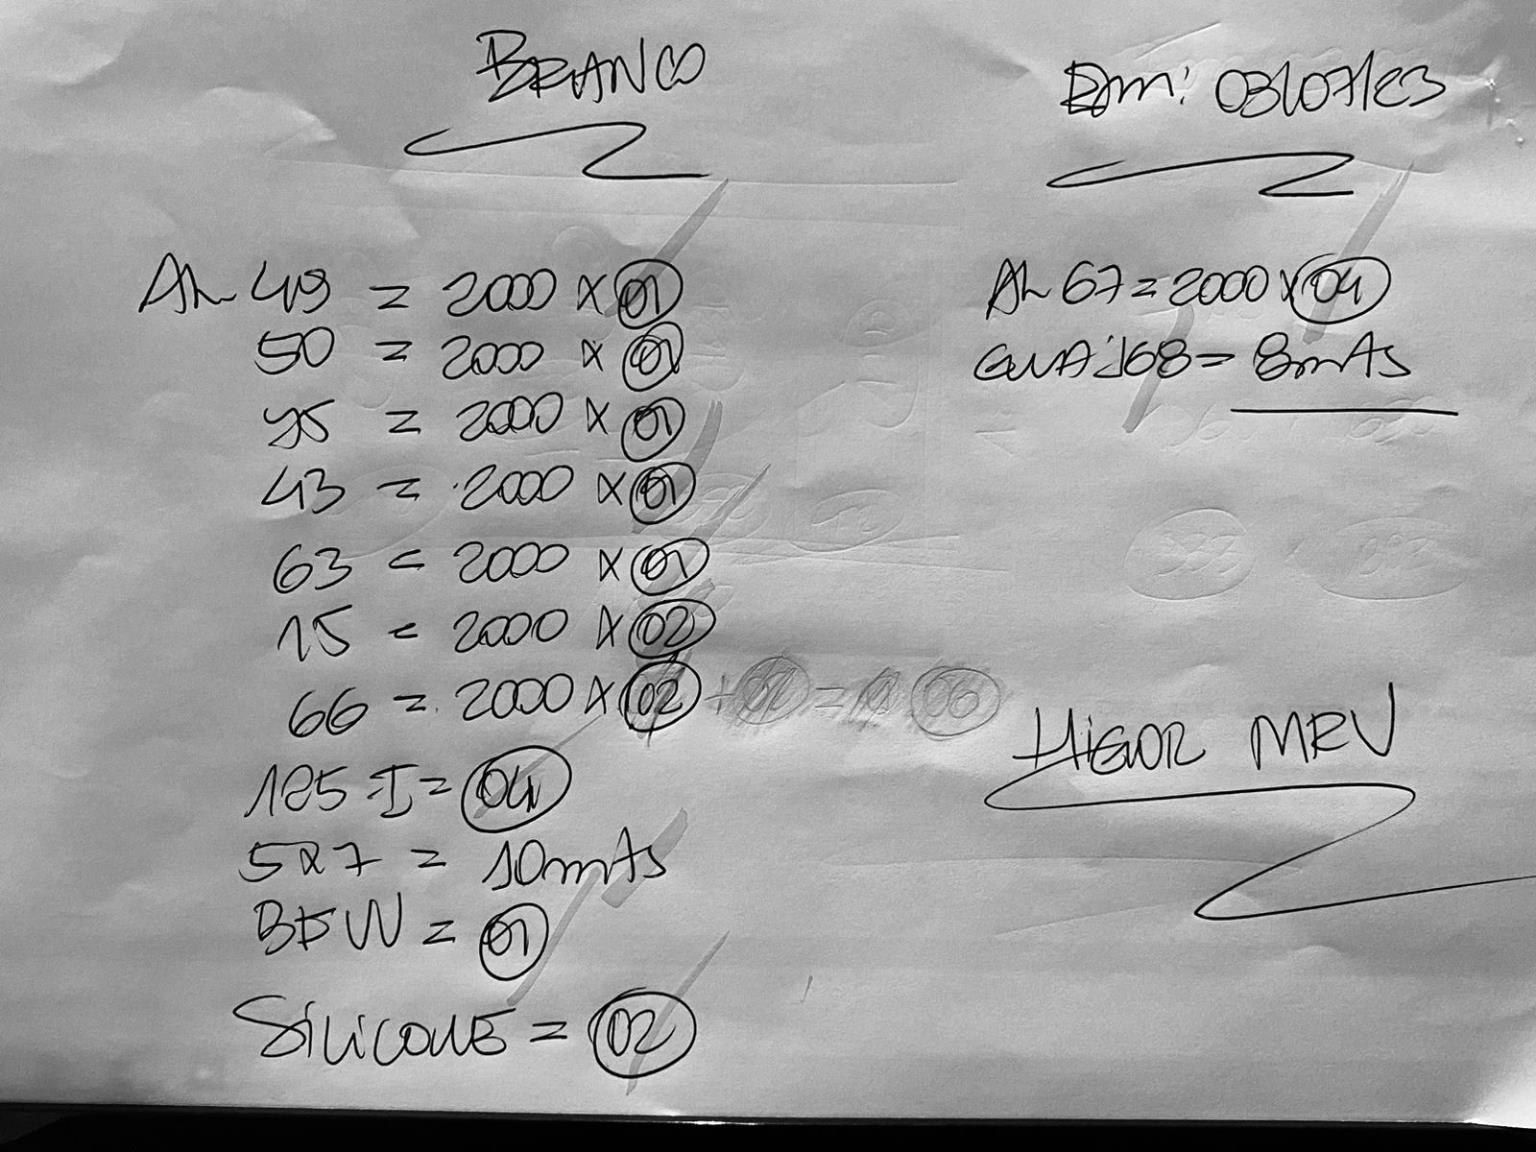 BRANCO
Em: 03/07/23
AL 49 = 2000 x 01
50 = 2000 x 01
45 = 2000 x 01
43 = 2000 x 01
63 = 2000 x 01
15 = 2000 x 02
66 = 2000 x 02 + 02 = 06
125-I = 04
5x7 = 10mts
BFW = 01
SILICONE = 02
AL 67 = 2000 x 04
= 8mts
HIGOR MRV